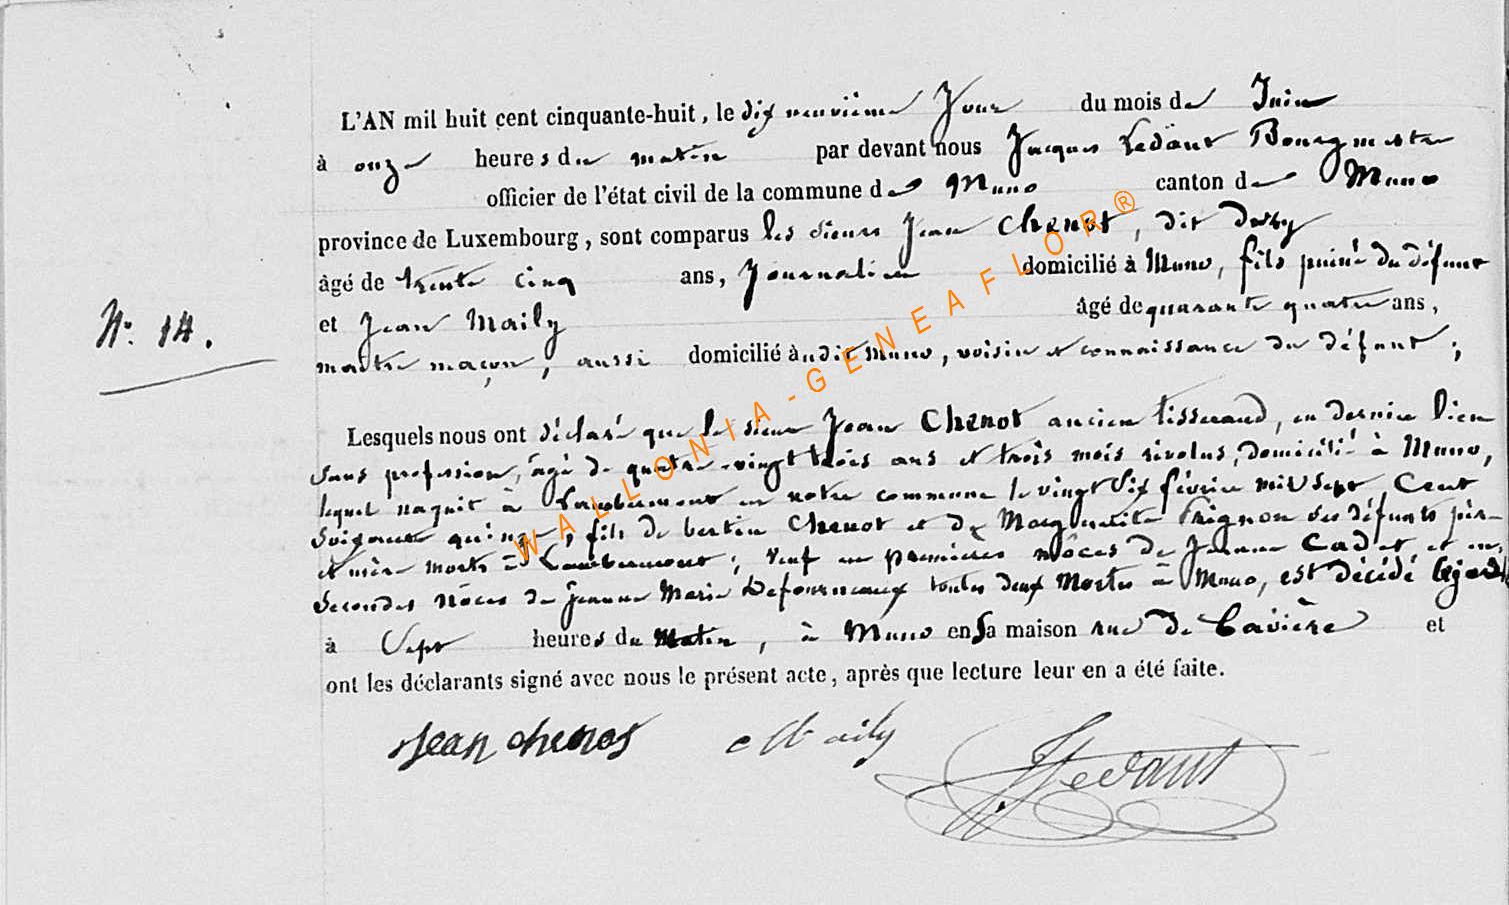 L'AN mil huit cent cinquante-huit, le dix neuvième Jour du mois de Juin
à onze heures du matin par devant nous Jacques Ledant Bourgmestre
officier de l'état civil de la commune de Muno canton de Muno
province de Luxembourg, sont comparus les sieurs Jean Chenot, dit
âgé de trente cinq ans, Journalier domicilié à Muno, fils puiné du défunt
N°. 14.
et Jean Maily âgé de quarante quatre ans,
maître maçon, aussi domicilié audit Muno, voisin et connaissance du défunt ;
Lesquels nous ont déclaré que le sieur Jean Chenot ancien tisserand, en dernier lieu
sans profession, âgé de quatre-vingt trois ans et trois mois révolus, domicilié à Muno,
lequel naquit à Lambermont en notre commune le vingt six février mil sept Cent
soixante quinze, fils de bertin Chenot et de Marguerite Prignon ses défunts père
et mère morts à Lambermont ; veuf en premières nôces de Jeanne Cadet, et en
secondes nôces de Jeanne Marie Defourneaux toutes deux Mortes à Muno, est décédé
à Sept heures du Matin, à Muno en sa maison rue de Bavière et
ont les déclarants signé avec nous le présent acte, après que lecture leur en a été faite.
Jean chenot Maily JLedant
WALLONIA-GENEAFLOR®